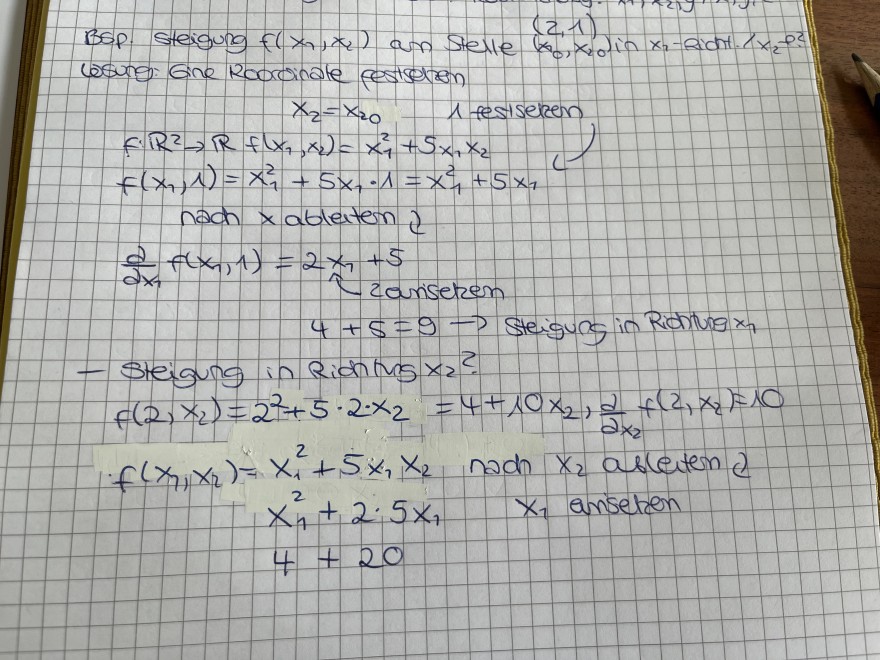 (2,1)
Bsp. Steigung f(x₁,x₂) an Stelle (x₁₀,x₂₀) in x₁-Richt. / x₂-R?
Lösung: Eine Koordinate festsetzen
x₂=x₂₀ 1 festsetzen
f: ℝ²→ℝ f(x₁,x₂)= x₁² +5x₁x₂
f(x₁,1)=x₁² + 5x₁·1=x₁² +5x₁
nach x ableiten ∂
∂/∂x₁ f(x₁,1) = 2x₁ +5
2 einsetzen
4 + 5 = 9 → Steigung in Richtung x₁
– Steigung in Richtung x₂?
f(2,x₂)=2²+5·2·x₂ =4+10x₂, ∂/∂x₂ f(2,x₂)=10
f(x₁,x₂)= x₁² +5x₁x₂ nach x₂ ableiten ∂
x₁² + 2·5x₁ x₁ einsetzen
4 + 20